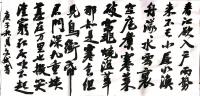 春江欲入户雨勢
来不已小屋如漁
舟濛濛水雲裏空
庖煮寒菜
破竈燒濕葦
那知是寒食但
見烏銜紙君
門深九重墳
墓在万里也擬哭
塗窮死灰吹不起